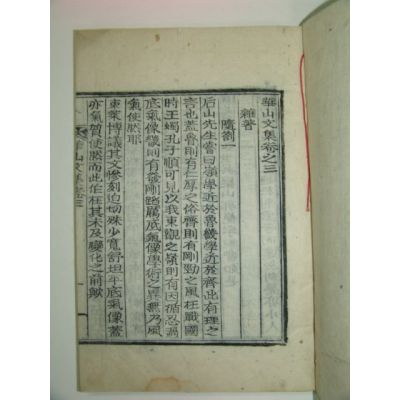 華山文集卷之三
雜著
隨劄一
后山先生嘗曰嶺學近於魯畿學近於齊此有理之
言也蓋魯則有仁厚之俗齊則有剛勁之風在戰國
時王蠋孔子順可見以我東觀之嶺則有因循忍漏
底氣像畿則有發剛踏厲底氣像學術之異無乃風
氣使然耶
東萊博議其文慘刻迫切殊少寬舒坦平底氣像蓋
亦氣質使然而此作在其未及變化之前歟
華山文集卷三